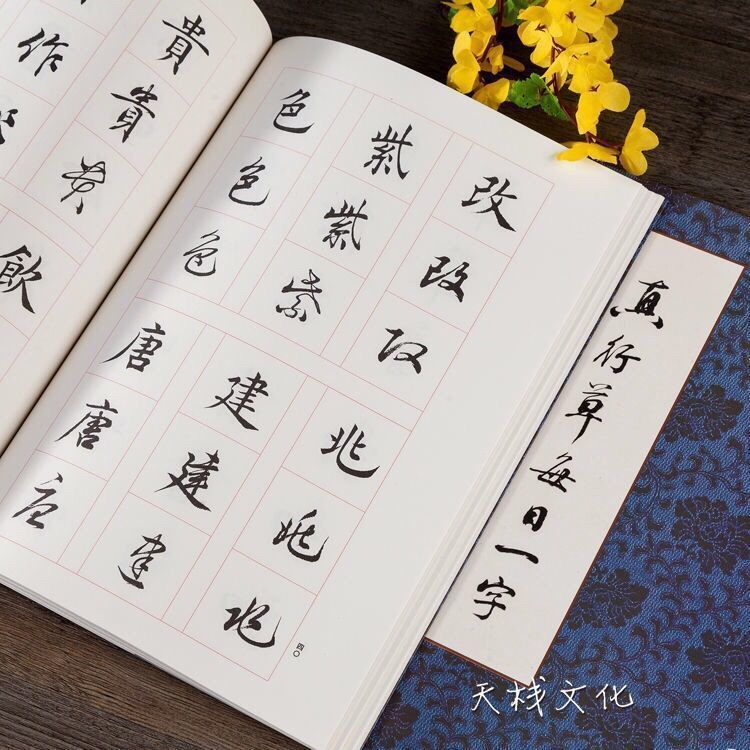 改改改
紫紫紫
色色色
北北北
建建建
唐唐唐
四〇
貴貴貴
作
飲
真行草每日一字
天栈文化